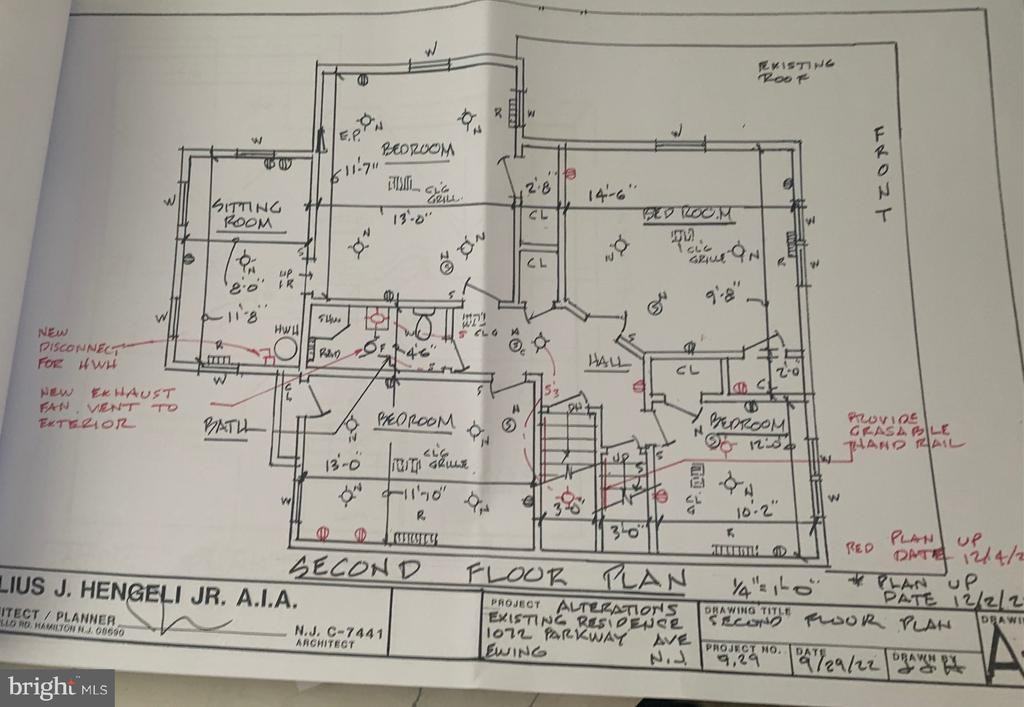 EXISTING
ROOF
FRONT
W
W
E.P.
N
N
R
W
W
BEDROOM
11'-7"
CL'G
GRILL
13'-0"
2'-8"
CL
CL
14'-6"
BED ROOM
CL'G
GRILLE
N
N
W
R
W
9'-8"
W
SITTING
ROOM
N
8'-0"
11'-8"
UP
1R
S
HWH
W
R
W
NEW
DISCONNECT
FOR HWH
NEW EXHAUST
FAN. VENT TO
EXTERIOR
BATH
SHW
RAD
4'-6"
HALL
CL
2'-0"
S3
DN
UP
CL
BEDROOM
13'-0"
CL'G
GRILLE
11'-10"
R
3'-0"
3'-0"
BEDROOM
12'-0"
CL
G
10'-2"
R
W
W
PROVIDE
GRASABLE
HAND RAIL
RED PLAN UP
DATE 12/4/2
* PLAN UP
DATE 12/2/2
SECOND FLOOR PLAN
1/4" = 1'-0"
LIUS J. HENGELI JR. A.I.A.
HITECT / PLANNER
LLO RD. HAMILTON N.J. 08690
N.J. C-7441
ARCHITECT
PROJECT ALTERATIONS
EXISTING RESIDENCE
1072 PARKWAY AVE
EWING N.J.
DRAWING TITLE
SECOND FLOOR PLAN
PROJECT NO.
9.29
DATE
9/29/22
DRAWN BY
JJH
DRAWIN
A
bright MLS